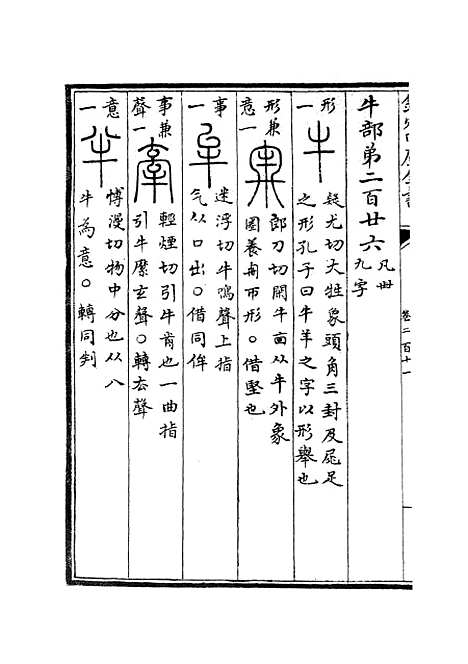 卷二百十一
牛部第二百廿六 凡卌九字
形一 牛 疑尤切大牲象頭角三封及𡱂足
之形孔子曰牛羊之字以形舉也
形兼意一 郎刀切閑牛馬从牛外象
圈養舟帀形○借堅也
事一 牟 迷浮切牛鳴聲上指
气从口出○借同侔
事兼聲一 牽 輕煙切引牛肯也一曲指
引牛縻玄聲○轉去聲
意一 半 博漫切物中分也从八
牛為意○轉同判